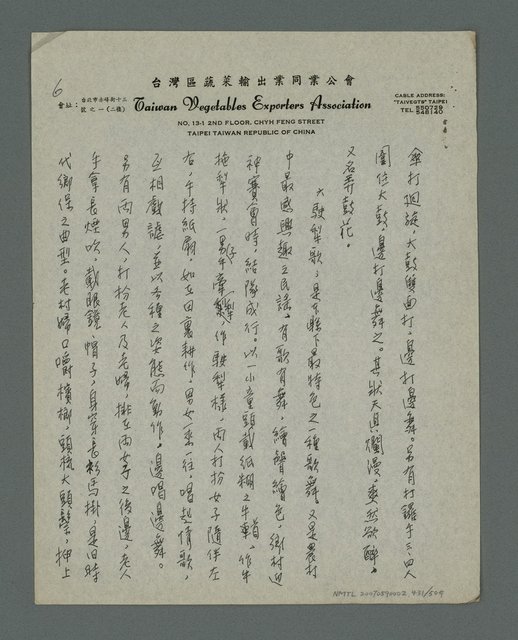 6
台灣區蔬菜輸出業同業公會
會址：台北市赤峰街十三號之一(二樓)
Taiwan Vegetables Exporters Association
NO. 13-1 2ND FLOOR, CHYH FENG STREET
TAIPEI TAIWAN REPUBLIC OF CHINA
CABLE ADDRESS:
"TAIVEGTS" TAIPEI
TEL 550729
548140
傘打迴旋，大鼓雙面打，邊打邊舞。另有打鑼手三、四人
圍住大鼓，邊打邊舞之。其狀天真爛漫，爽然欲醉。
又名弄鼓花。
六駛犁歌，是本縣下最特色之一種歌舞，又是農村
中最感興趣之民謠，有歌有舞，繪聲繪色，鄉村迎
神賽會時，結隊成行。以一小童頭戴紙糊之牛頭，作牛
拖犁狀，一男仔牽犁，作駛犁樣，兩人打扮女子隨伴左
右，手持紙扇，如在田裏耕作，男女一來一往，唱起情歌，
互相戲謔，並以各種之姿態而動作。邊唱邊舞。
另有兩男人，打扮老人及老婦，排在兩女子之後邊，老人
手拿長煙吹，戴眼鏡，帽子，身穿長衫馬掛，是旧時
代鄉保之典型。老村婦口嚼檳榔，頭梳大頭髻，押上
NMTL 20070590002 431/509